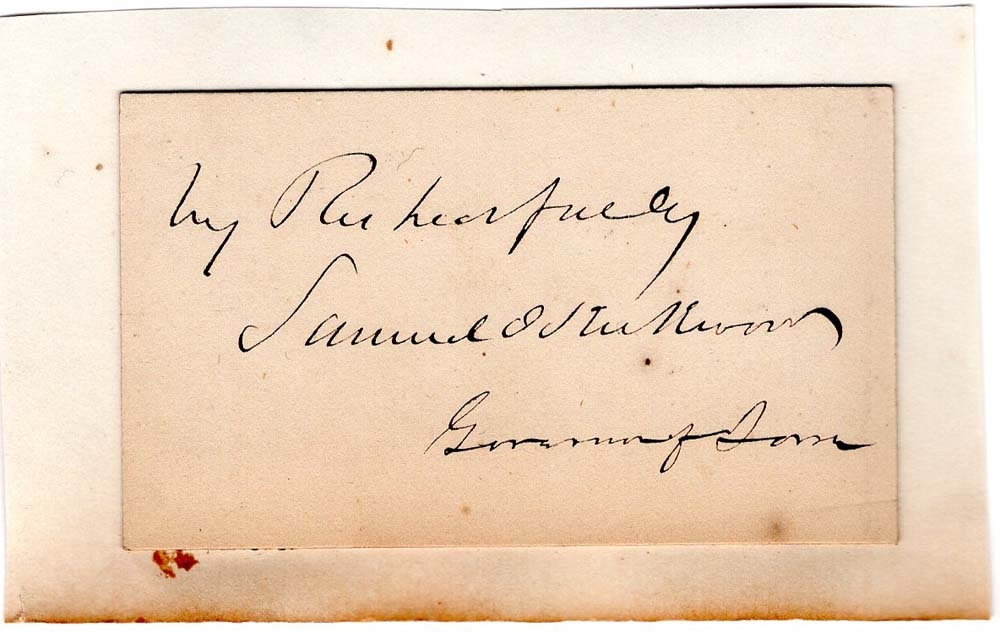 Very Respectfully
Samuel J Kirkwood
Governor of Iowa